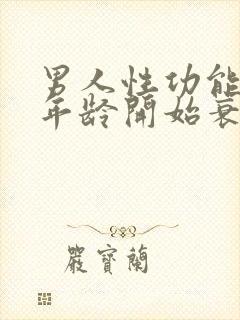 男人性功能
年龄開始衰
嚴寶蘭